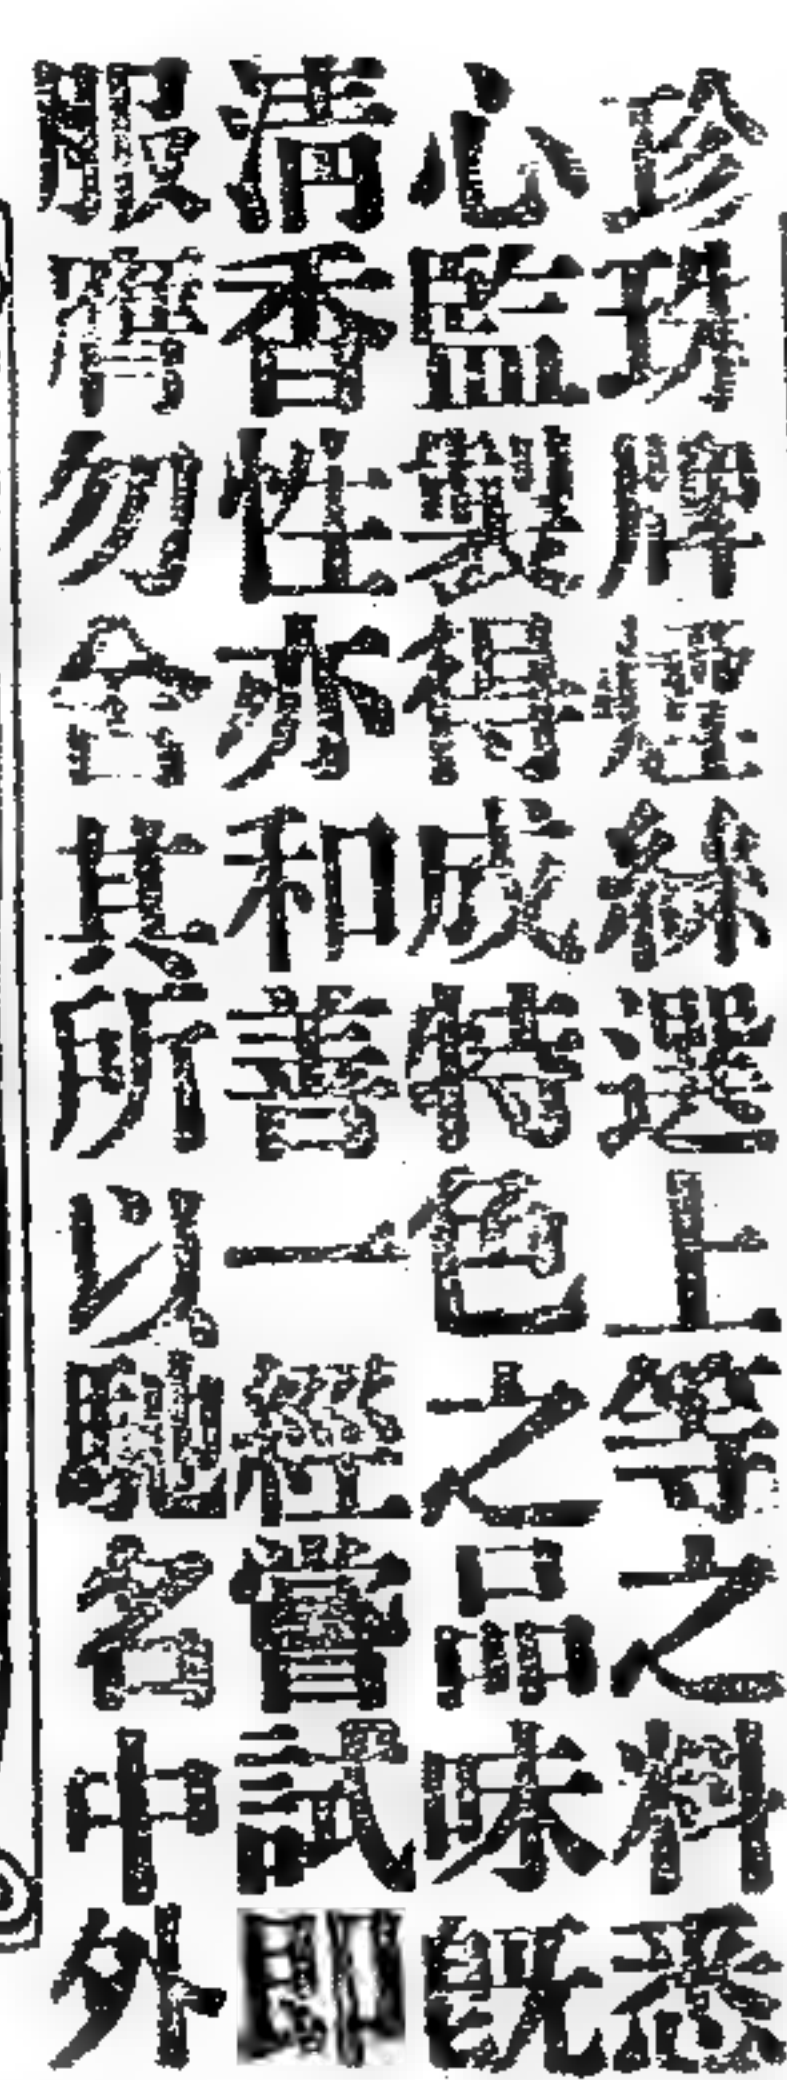 珍珠牌煙絲選上等之料悉
心監製得成特色之品味既
清香性亦和善一經嘗試即
服膺勿舍其所以馳名中外